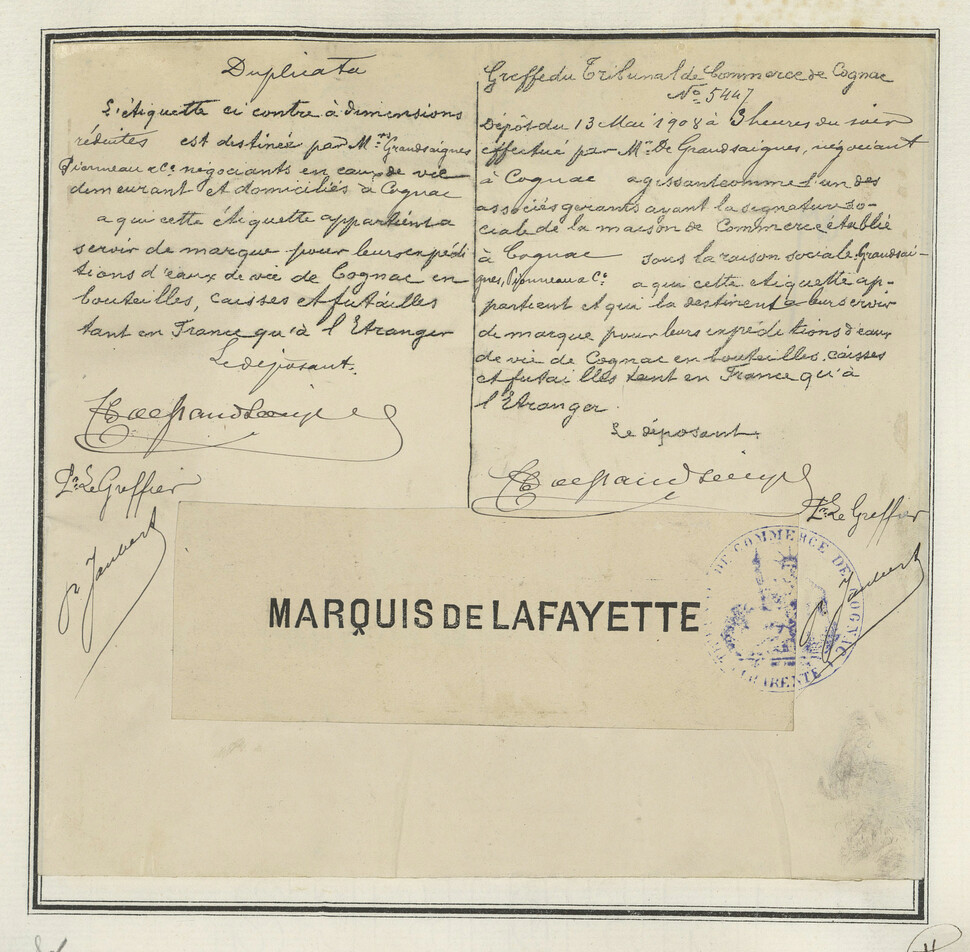 Duplicata
L'étiquette ci contre à dimensions
réduites est destinée par Mrs Grandsaignes
Pionneau & Cie négociants en eaux de vie
demeurant et domiciliés à Cognac
a qui cette étiquette appartient a
servir de marque pour leurs expédi
tions d'eaux de vie de Cognac en
bouteilles, caisses et futailles
tant en France qu'à l'Etranger
Le déposant.
Pr Le Greffier
Jaubert
Greffe du Tribunal de Commerce de Cognac
No 5447
Dépôt du 13 Mai 1908 à 3 heures du soir
effectué par Mr De Grandsaignes, négociant
à Cognac agissant comme l'un des
associés gerants ayant la signature so-
ciale de la maison de Commerce établie
à Cognac sous la raison sociale Grandsai-
gnes, Pionneau & Ce a qui cette étiquette ap-
partient et qui la destinent a leur servir
de marque pour leurs expéditions d'eaux
de vie de Cognac en bouteilles, caisses
et futailles tant en France qu'à
l'Etranger.
Le déposant.
Pr Le Greffier
Jaubert
MARQUIS DE LAFAYETTE
DE COMMERCE DE COGNAC
CHARENTE